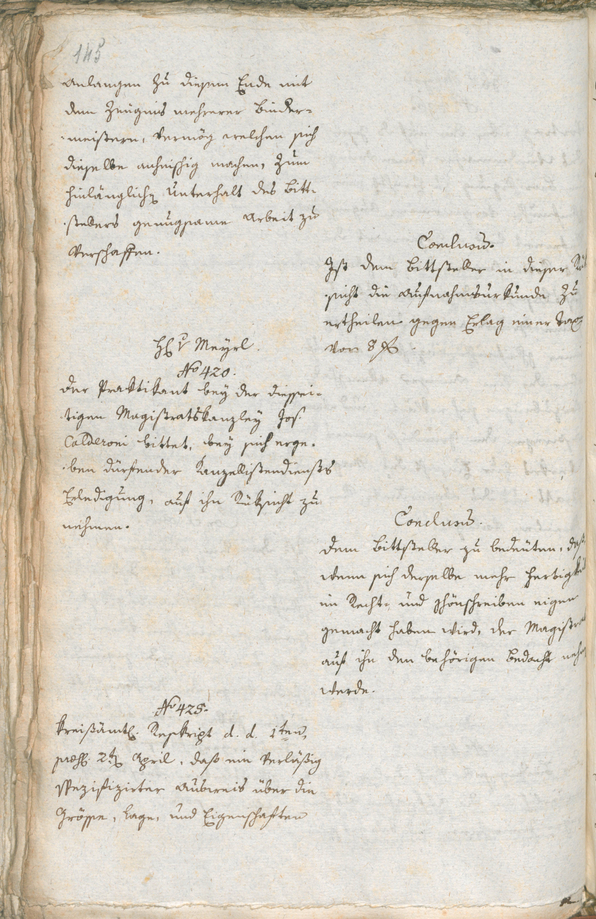 145
anlangen zu diesem Ende mit
dem Zeugnis mehrerer Binder-
meistern, vermög welchen sich
dieselbe anheischig machen, zum
hinlänglichen Unterhalt des Bitt-
stellers genugsame Arbeit zu
verschaffen.
Conclusum.
Ist dem Bittsteller in dieser Rük
sicht die Aufnahmsurkunde zu
ertheilen gegen Erlag einer Tax
von 8 f.
H. v. Meyrl.
No 420.
Der Praktikant bey der diessei-
tigen Magistratskanzley Jos
Calderoni bittet, bey sich erge-
ben dürfender Kanzellistendiensts
Erledigung, auf ihn Rüksicht zu
nehmen.
Conclusum.
Dem Bittsteller zu bedeuten, daß
wenn sich derselbe mehr Fertigkeit
im Recht- und Schönschreiben eigen
gemacht haben wird, der Magistrat
auf ihn den behörigen Bedacht nehmen
werde.
No 425.
Kreißämtl. Reskript d. d. 1ten,
praes. 2ten April, daß ein verläßig
spezifizirter Ausweis über die
Grösse, Lage, und Eigenschaften